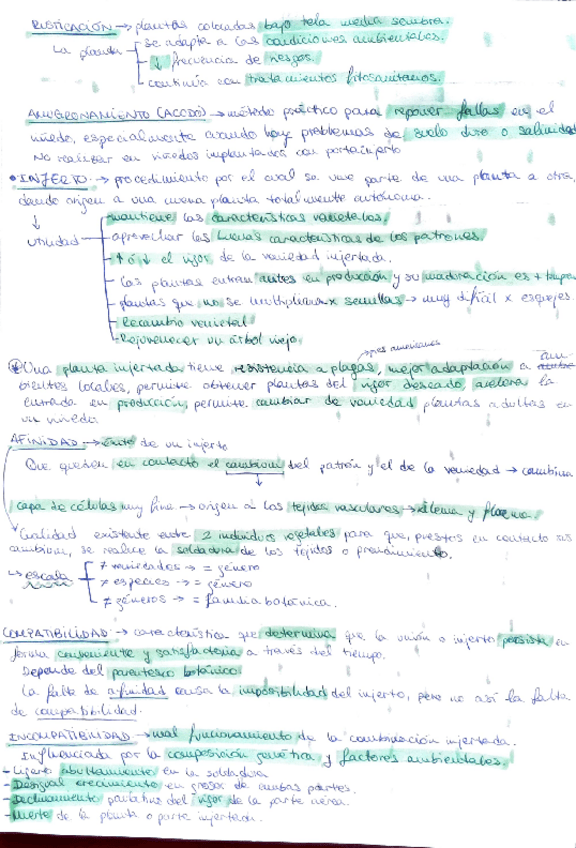 RUSTICACIÓN → plantas colocadas bajo tela media sombra.
La planta se adapta a las condiciones ambientales.
↓ frecuencia de riesgos.
continúa con tratamientos fitosanitarios.
AMUGRONAMIENTO (ACODO) → método práctico para reponer fallas en el
viñedo, especialmente cuando hay problemas de suelo duro o salinidad
No realizar en viñedos implantados con portainjerto
• INJERTO → procedimiento por el cual se une parte de una planta a otra,
dando origen a una nueva planta totalmente autónoma.
↓
utilidad
mantiene las características varietales.
aprovechar las buenas características de los patrones.
↑ ó ↓ el vigor de la variedad injertada.
Las plantas entran antes en producción y su maduración es + tempra
plantas que no se multiplican x semillas → muy difícil x esquejes.
Recambio varietal
Rejuvenecer un árbol viejo.
americanas
Una planta injertada tiene resistencia a plagas, mejor adaptación a am-
bientes locales, permite obtener plantas del vigor deseado, acelera la
entrada en producción, permite cambiar de variedad plantas adultas en
un viñedo
AFINIDAD → éxito de un injerto
Que queden en contacto el cambium del patrón y el de la variedad → cambium
capa de células muy fina → origen a los tejidos vasculares → xilema y floema.
Cualidad existente entre 2 individuos vegetales para que, puestos en contacto sus
cambium, se realice la soldadura de los tejidos o prendimiento.
↳ escala
≠ variedades → = género
≠ especies → = género
≠ géneros → = familia botánica.
COMPATIBILIDAD → característica que determina que la unión o injerto persista en
forma conveniente y satisfactoria a través del tiempo.
Depende del parentesco botánico
La falta de afinidad causa la imposibilidad del injerto, pero no así la falta
de compatibilidad.
INCOMPATIBILIDAD → mal funcionamiento de la combinación injertada.
Influenciada por la composición genética y factores ambientales.
- Ligero abultamiento en la soldadura
- Desigual crecimiento en grosor de ambas partes.
- Declinamiento paulatino del vigor de la parte aérea.
- Muerte de la planta o parte injertada.